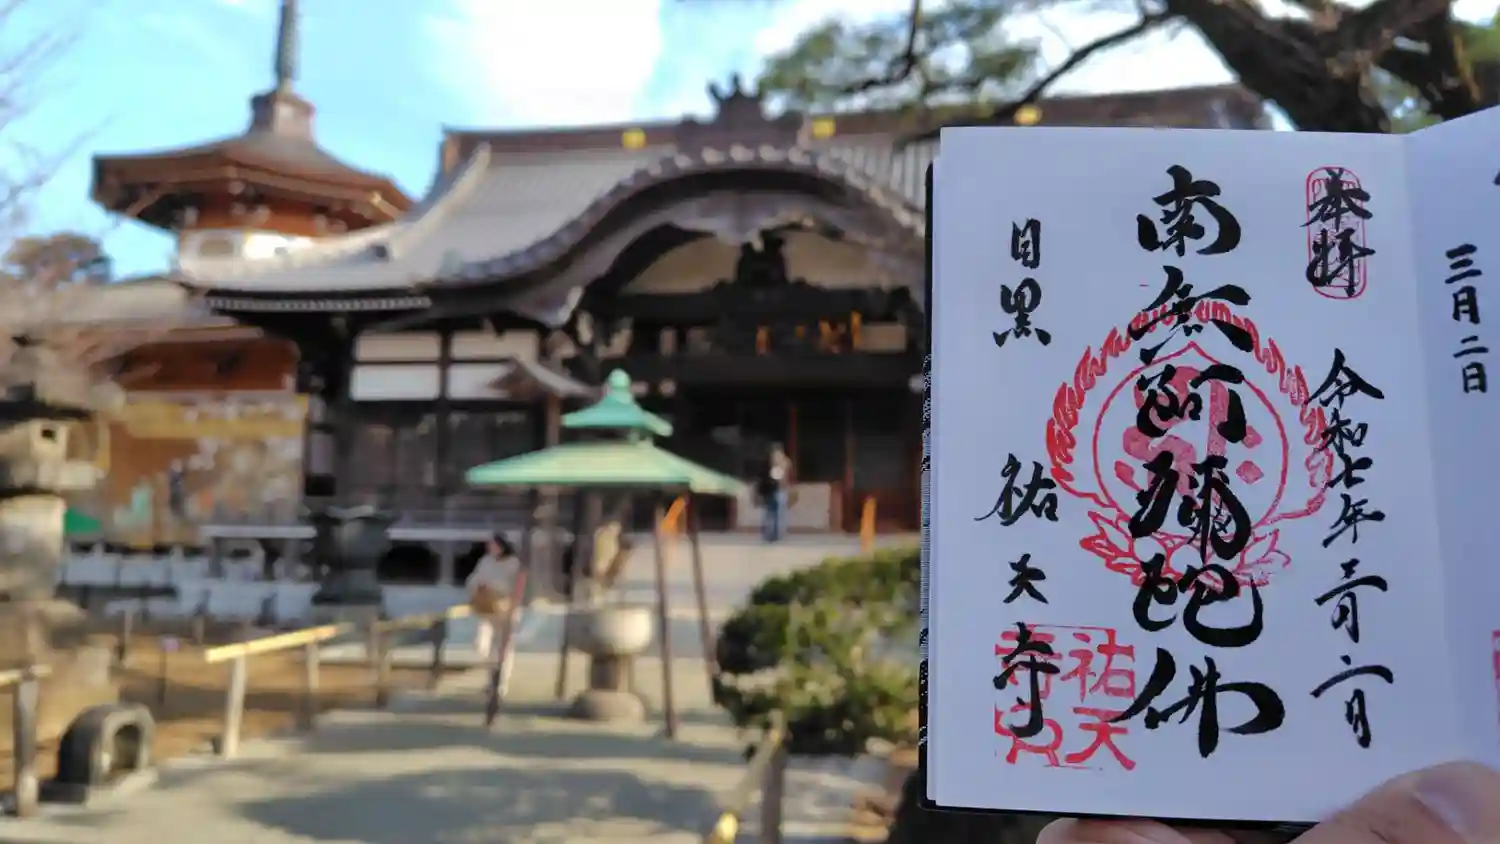 三月二日
奉拝
令和七年三月六日
南無阿彌陀佛
目黒
祐天寺
祐天
寺印